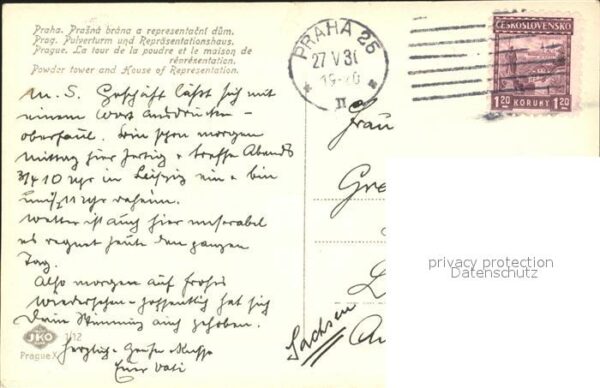 Praha. Prašná brána a representační dům.
Prag. Pulverturm und Repräsentationshaus.
Prague. La tour de la poudre et le maison de
représentation.
Powder tower and House of Representation.
M. S. Geschäft läßt sich mit
einem Wort ausdrücken –
oberfaul. Bin schon morgen
Mittag hier fertig + treffe Abends
3/4 10 Uhr in Leipzig ein + bin
11 Uhr daheim.
Wetter ist auch hier miserabel
es regnet heute den ganzen
Tag.
Also morgen auf frohes
Wiedersehen – hoffentlich hat sich
Dein Stimmung auch gehoben.
Herzliche Grüße + Küsse
Euer Vati
JKO
1/12
Prague X
PRAHA 25
27 V 3
19-20
II
ČESKOSLOVENSKO
1.20 KORUNY 1.20
Frau
Gre
L
Sachsen
privacy protection
Datenschutz